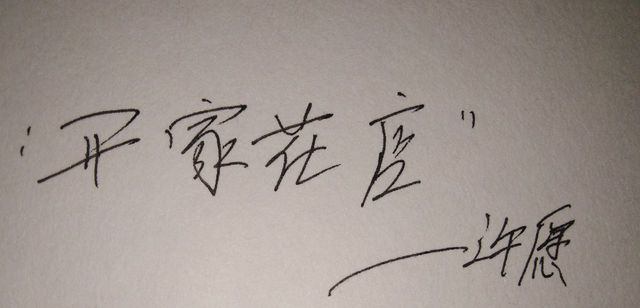 “开家花店”
——许愿